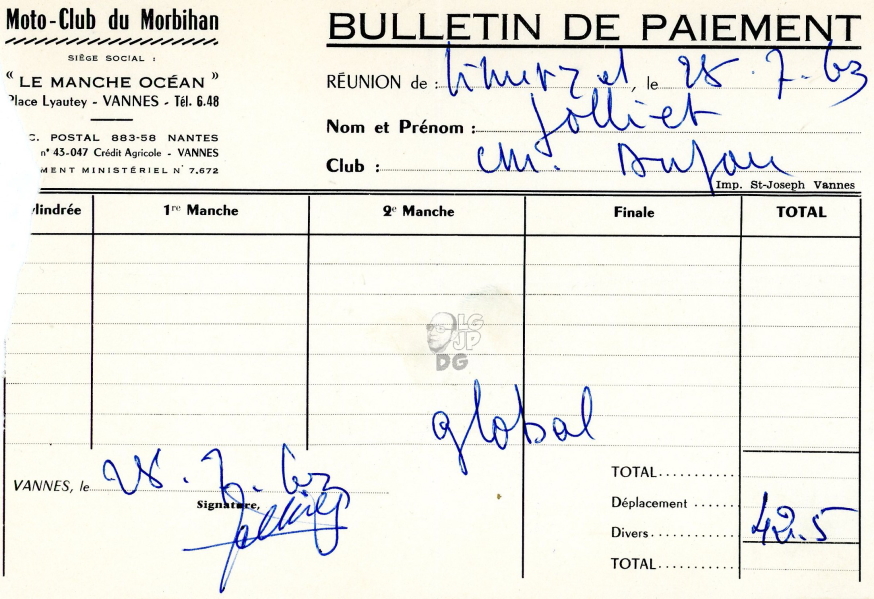 Moto-Club du Morbihan
SIÈGE SOCIAL :
“ LE MANCHE OCÉAN ”
Place Lyautey - VANNES - Tél. 6.48
C. POSTAL 883-58 NANTES
n° 43-047 Crédit Agricole - VANNES
MENT MINISTÉRIEL N° 7.672
BULLETIN DE PAIEMENT
RÉUNION de : , le 28.7.63
Nom et Prénom : Jolliet
Club : cm. Anjou
Imp. St-Joseph Vannes
ylindrée 1re Manche 2e Manche Finale TOTAL
LG
JP
DG
global
VANNES, le 28.7.63
Signature,
TOTAL
Déplacement
Divers 42.5
TOTAL